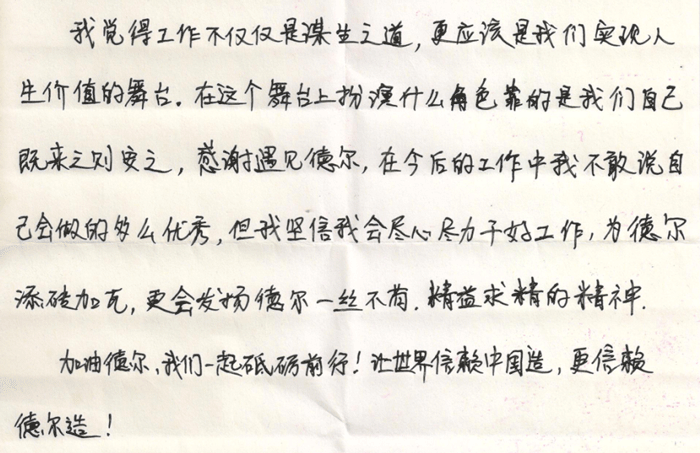 我觉得工作不仅仅是谋生之道，更应该是我们实现人
生价值的舞台。在这个舞台上扮演什么角色靠的是我们自己
既来之则安之，感谢遇见德尔，在今后的工作中我不敢说自
己会做的多么优秀，但我坚信我会尽心尽力干好工作，为德尔
添砖加瓦，更会发扬德尔一丝不苟.精益求精的精神.
加油德尔、我们一起砥砺前行！让世界信赖中国造，更信赖
德尔造！